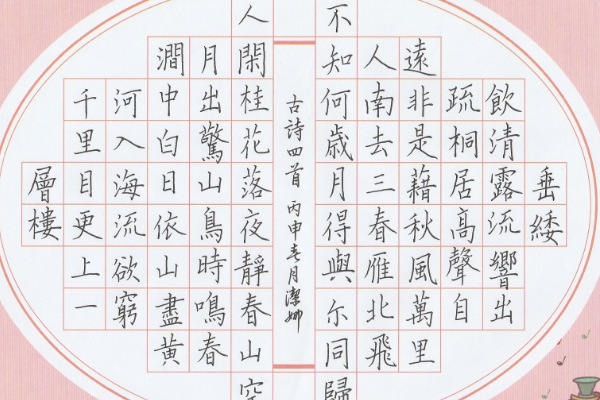 垂緌
飲清露流響出
疏桐居高聲自
遠非是藉秋風萬里
人南去三春雁北飛
不知何歲月得與尔同歸
古詩四首 丙申春月潔娜
人閑桂花落夜靜春山空
月出驚山鳥時鳴春
澗中白日依山盡黃
河入海流欲窮
千里目更上一
層樓